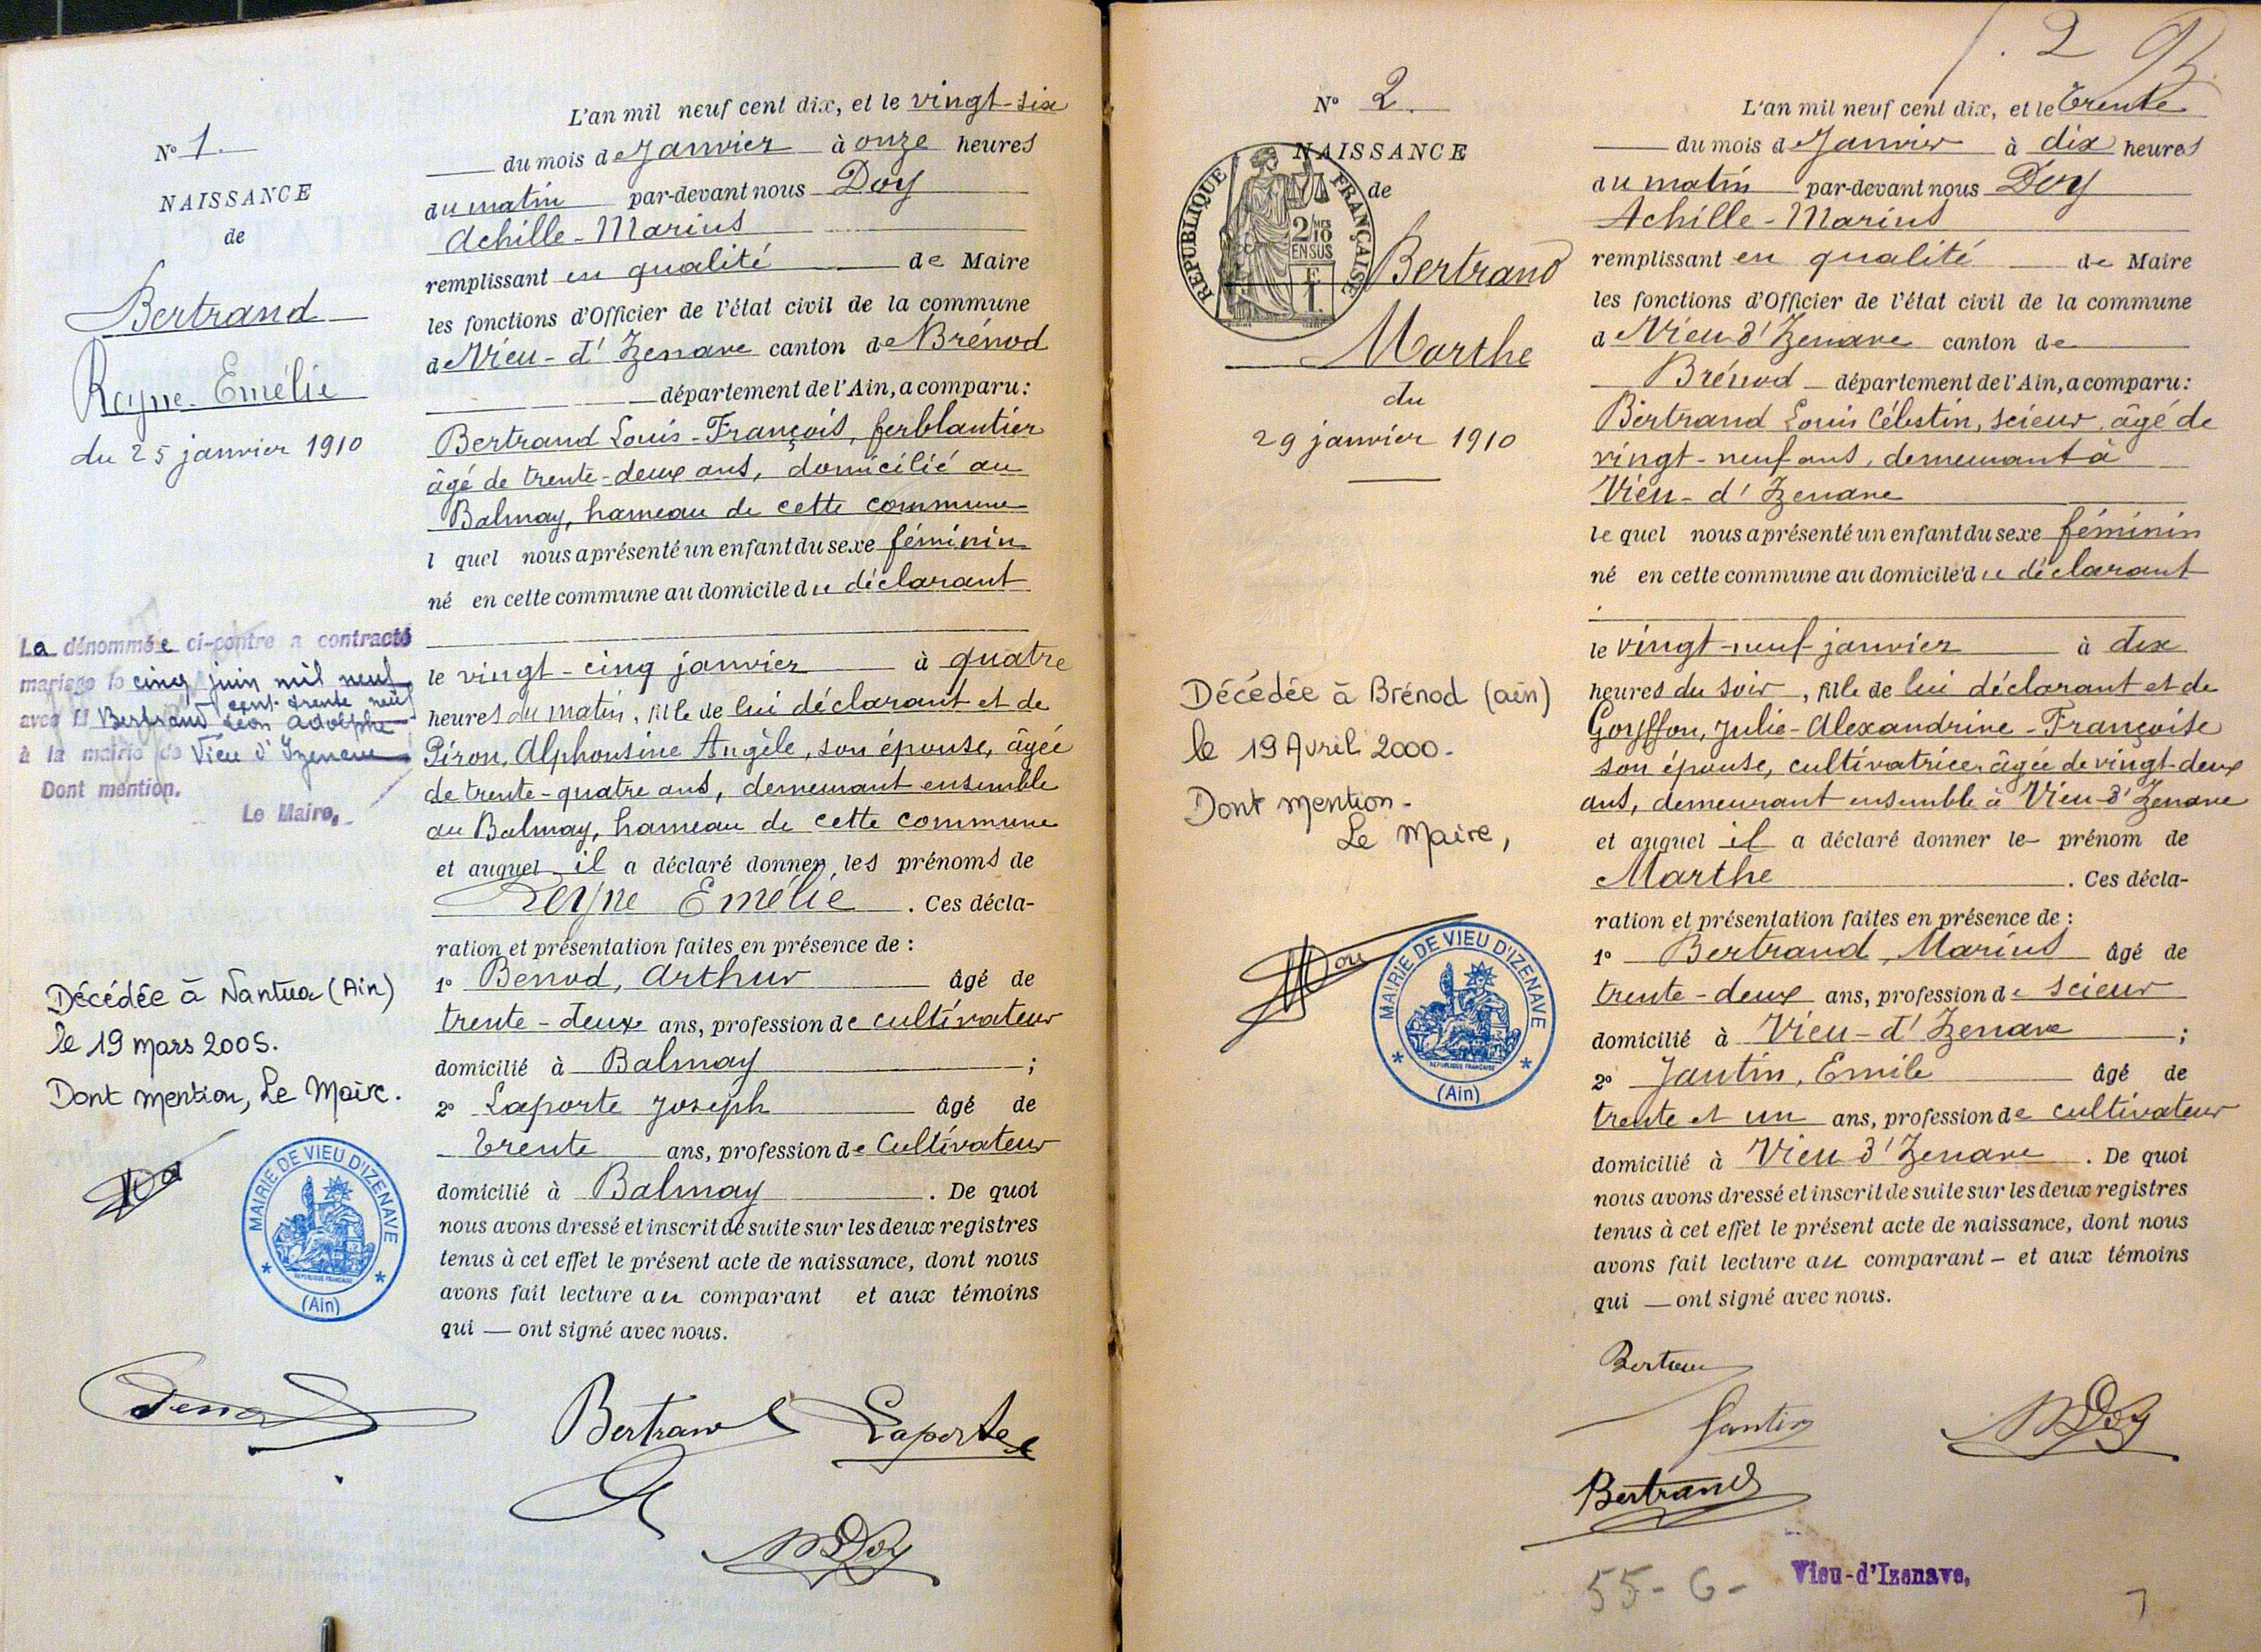 N° 1.
NAISSANCE
de
Bertrand
Reyne Emélie
du 25 janvier 1910
La dénommée ci-contre a contracté
mariage le cinq juin mil neuf
cent trente neuf
avec M Bertrand Léon Adolphe
à la mairie de Vieu d'Izenave
Dont mention.
Le Maire,
Décédée à Nantua (Ain)
le 19 mars 2005.
Dont mention, Le Maire.
MAIRIE DE VIEU D'IZENAVE
RÉPUBLIQUE FRANÇAISE
(Ain)
L'an mil neuf cent dix, et le vingt-six
du mois de Janvier à onze heures
du matin par-devant nous Doy
Achille-Marius
remplissant en qualité de Maire
les fonctions d'Officier de l'état civil de la commune
de Vieu-d'Izenave canton de Brénod
département de l'Ain, a comparu :
Bertrand Louis-François, ferblantier
âgé de trente-deux ans, domicilié au
Balmay, hameau de cette commune
l quel nous a présenté un enfant du sexe féminin
né en cette commune au domicile du déclarant
le vingt-cinq janvier à quatre
heures du matin, fille de lui déclarant et de
Piron, Alphonsine Angèle, son épouse, âgée
de trente-quatre ans, demeurant ensemble
au Balmay, hameau de cette commune
et auquel il a déclaré donner les prénoms de
Reyne Emélie . Ces décla-
ration et présentation faites en présence de :
1° Benod, Arthur âgé de
trente-deux ans, profession de cultivateur
domicilié à Balmay ;
2° Laporte Joseph âgé de
trente ans, profession de Cultivateur
domicilié à Balmay . De quoi
nous avons dressé et inscrit de suite sur les deux registres
tenus à cet effet le présent acte de naissance, dont nous
avons fait lecture au comparant et aux témoins
qui — ont signé avec nous.
Bertrand Laporte
Doy
2
N° 2.
NAISSANCE
de
RÉPUBLIQUE FRANÇAISE
2/10 MES
EN SUS
F
1.
Bertrand
Marthe
du
29 janvier 1910
Décédée à Brénod (ain)
le 19 Avril 2000.
Dont mention.
Le Maire,
MAIRIE DE VIEU D'IZENAVE
RÉPUBLIQUE FRANÇAISE
(Ain)
L'an mil neuf cent dix, et le trente
du mois de Janvier à dix heures
du matin par-devant nous Doy
Achille-Marius
remplissant en qualité de Maire
les fonctions d'Officier de l'état civil de la commune
de Vieu d'Izenave canton de
Brénod département de l'Ain, a comparu :
Bertrand Louis Célestin, scieur, âgé de
vingt-neuf ans, demeurant à
Vieu-d'Izenave
le quel nous a présenté un enfant du sexe féminin
né en cette commune au domicile du déclarant
le vingt-neuf janvier à dix
heures du soir, fille de lui déclarant et de
Goyffon, Julie-Alexandrine-Françoise
son épouse, cultivatrice, âgée de vingt-deux
ans, demeurant ensemble à Vieu-d'Izenave
et auquel il a déclaré donner le prénom de
Marthe . Ces décla-
ration et présentation faites en présence de :
1° Bertrand, Marius âgé de
trente-deux ans, profession de scieur
domicilié à Vieu-d'Izenave ;
2° Jantin, Emile âgé de
trente et un ans, profession de cultivateur
domicilié à Vieu d'Izenave . De quoi
nous avons dressé et inscrit de suite sur les deux registres
tenus à cet effet le présent acte de naissance, dont nous
avons fait lecture au comparant — et aux témoins
qui — ont signé avec nous.
Jantin
Doy
Bertrand
55-6- Vieu-d'Izenave,